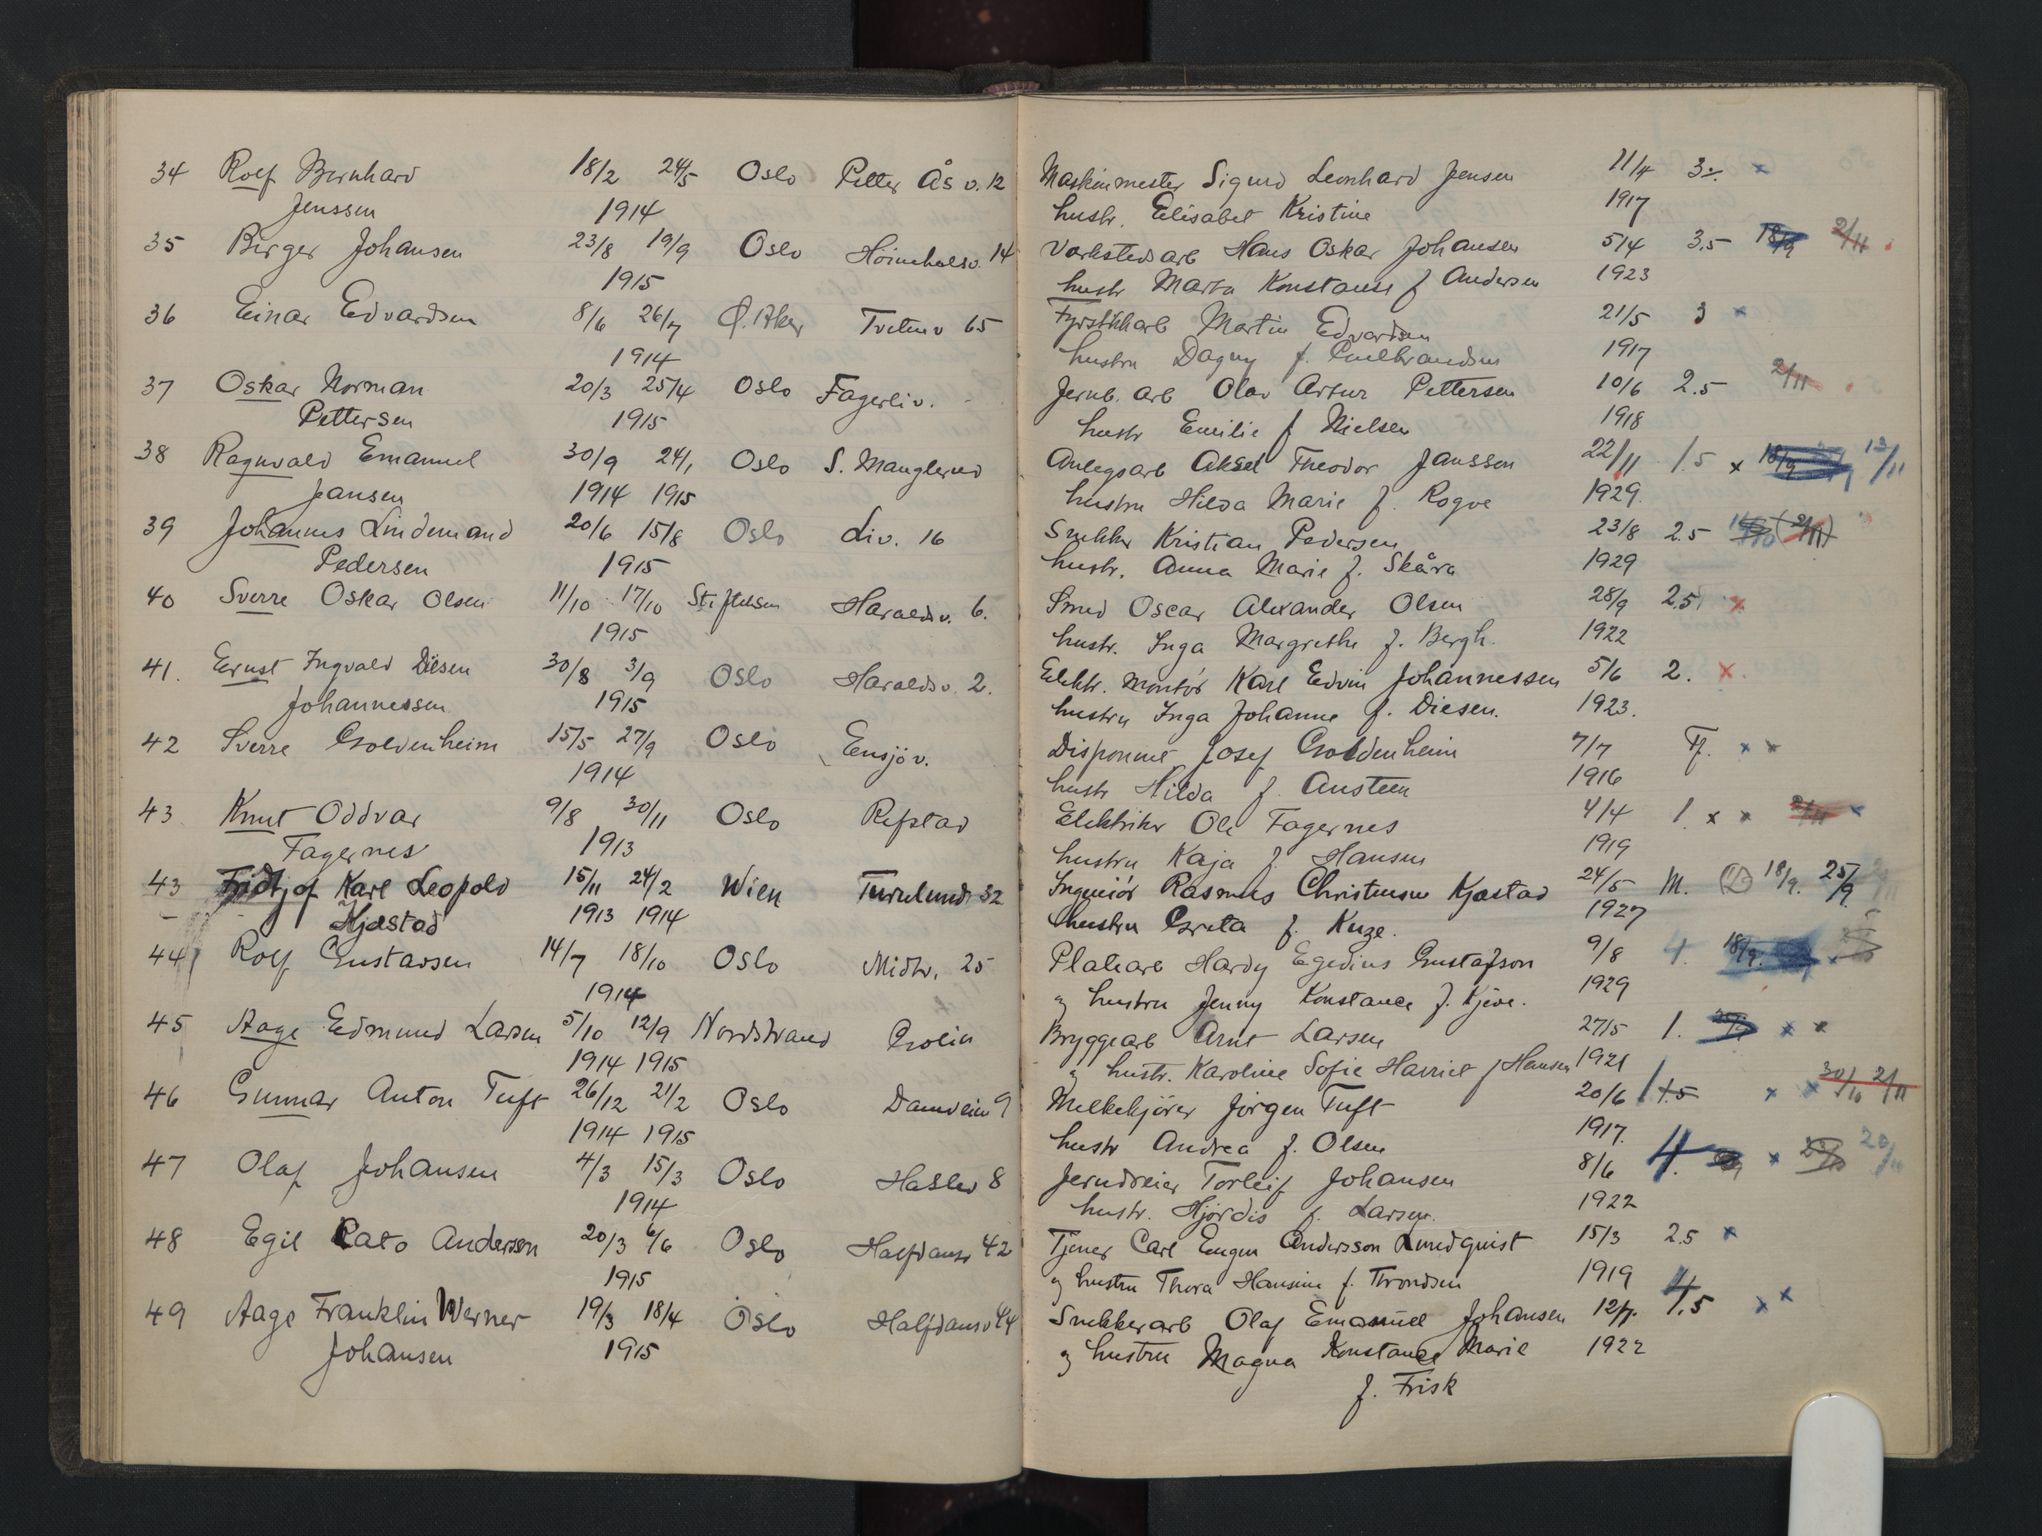 34 Rolf Bernhard 18/2 24/5 Oslo Petter Ås v. 12
Jenssen 1914
35 Birger Johansen 23/8 19/9 Oslo 14
1915
36 Einar Edvardsen 8/6 26/7 Ø. Aker Tvetenv 65
1914
37 Oskar Norman 20/3 25/4 Oslo Fagerliv.
Pettersen 1915
38 Ragnvald Emanuel 30/9 24/1 Oslo S. Manglerud
Jansen 1914 1915
39 Johannes Lindemand 20/6 15/8 Oslo Liv. 16
Pedersen 1915
40 Sverre Oskar Olsen 11/10 17/10 Stiftelsen Haraldsv. 6.
1915
41. Ernst Ingvald Diesen 30/8 3/9 Oslo Haraldsv. 2.
Johannessen 1915
42 Sverre Goldenheim 15/5 27/9 Oslo Ensjöv.
1914
43 Knut Oddvar 9/8 30/11 Oslo Refstad
Fagernes 1913
43 Fridtjof Karl Leopold 15/11 24/2 Wien 32
Kjæstad 1913 1914
44 Rolf Gustavsen 14/7 18/10 Oslo Midtv. 25
1914
45 Aage Edmund Larsen 5/10 12/9 Nordstrand Golia
1914 1915
46 Gunnar Anton Tuft 26/12 21/2 Oslo Damveien 9
1914 1915
47 Olaf Johansen 4/3 15/3 Oslo Haslev 8
1914
48 Egil Cato Andersen 20/3 6/6 Oslo Halfdansv 42
1915
49 Aage Franklin Werner 19/3 18/4 Oslo Halfdansv 44
Johansen 1915
Maskinmester Sigurd Leonhard Jensen 11/4 3
hustr. Elisabet Kristine 1917
Verkstedsarb Hans Oskar Johansen 5/4 3.5 18/9 2/11
hustr Marta Konstanse f Andersen 1923
Fyrstikkarb Martin Edvardsen 21/5 3 x
hustru Dagny f. 1917
Jernb. arb Olav Artur Pettersen 10/6 2.5 2/11
hustr Emilie f Nielsen 1918
Anlegsarb Aksel Theodor Janssen 22/11 1.5 x 18/9 12/11
hustru Hilda Marie f. Rogve 1929.
Snekker Kristian Pedersen 23/8 2.5 (2/11)
hustr. Anna Marie f. Skåra 1929
Smed Oscar Alexander Olsen 28/9 2.5 x
hustr. Inga Margrethe f. Bergh. 1922
Elektr. montör Karl Edvin Johannessen 5/6 2. x
hustru Inga Johanne f. Diesen. 1923.
Disponent Josef Goldenheim 7/7 Tf. x x
hustr Hilda f. Austeen 1916
Elektriker Ole Fagernes 4/4 1. x x 2/11 x
hustru Kaja f Hansen 1919
Ingeniör Rasmus Christensen Kjæstad 24/5 M. 18/9. 25/9.
hustru Greta f. Kuze. 1927
Platearb Hardy Egedius Gustafson 9/8 4. 18/9.
og hustru Jenny Konstance f. Kjøe. 1929
Bryggearb Arnt Larsen 27/5 1. x x
og hustr. Karoline Sofie Harriet f Hansen 1921
Melkekjörer Jörgen Tuft 20/6 1.5 x x 30/10 2/11
hustr Andrea f. Olsen 1917.
Jerndreier Torleif Johansen 8/6 4. x 20/11
hustr. Hjördis f. Larsen. 1922
Tjener Carl Eugen Andersson Lundquist 15/3 2.5 x
og hustru Thora Hansine f. Throndsen 1919
Snekkerarb Olaf Emanuel Johansen 12/7. 4.5 x x
og hustru Magna Konstance Marie 1922
f. Frisk